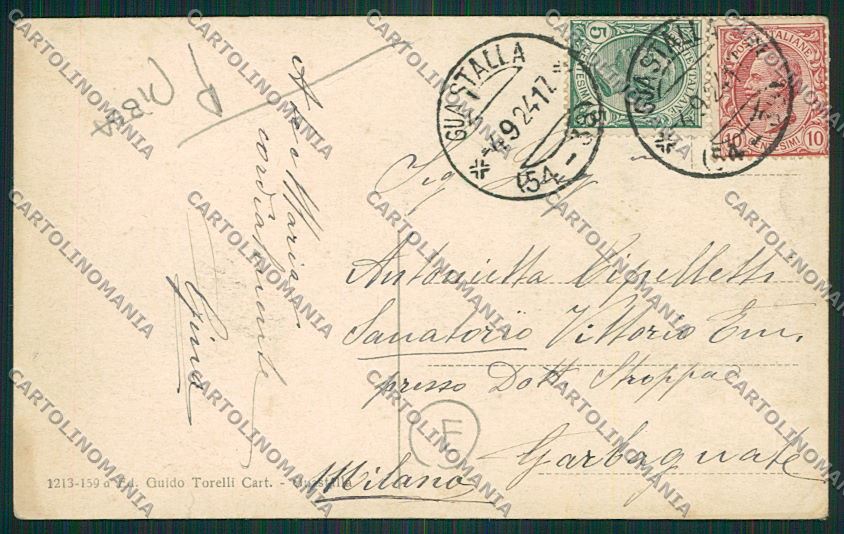 GUASTALLA
4.9.24.17
(54
GUASTALLA
(54
5
CENTESIMI
POSTE ITALIANE
10 CENTESIMI 10
A te Maria
cordialmente
Gina
Antonietta Cipelletti
Sanatorio Vittorio Em.
presso Dott Stroppa
Garbagnate
Milano
E
1213-159 a Ed. Guido Torelli Cart. - Guastalla
CARTOLINOMANIA